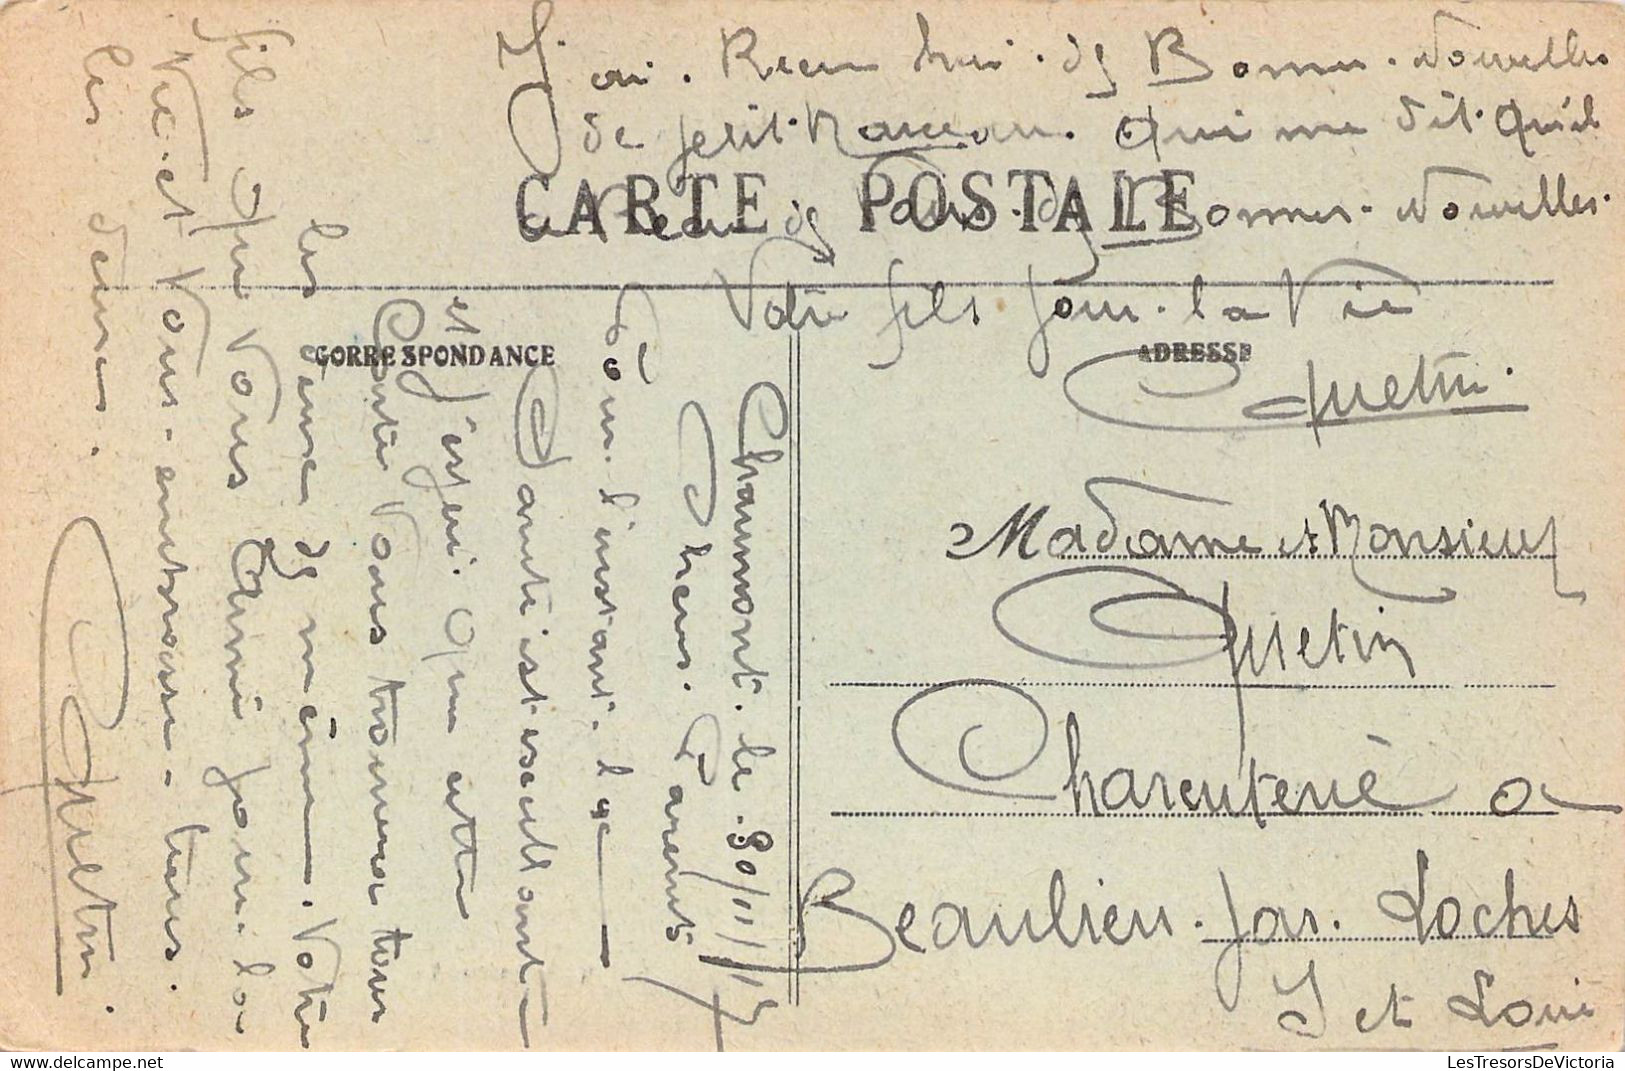 J'ai. Recu hui. de Bonnes. Nouvelles
de petit. Marceau. Qui me dit. Qu'il
a Recu de Vous. de Bonnes. Nouvelles.
CARTE POSTALE
Votre fils pour. la Vie
Quetin.
CORRESPONDANCE
ADRESSE
Chaumont. le. 30/11/15
Chers. Parents
Pour. l'instant. la
Santé est excellante
et J'espere. Que cette
Carte Vous trouvera tous
les deux de même. Votre
fils Qui Vous Aime pour. la
Vie. et Vous. embrasse. tous.
les deux.
Quetin.
Madame et Monsieur
Quetin
Charcuterie a
Beaulieu. par. Loches
I et Loire
LesTresorsDeVictoria